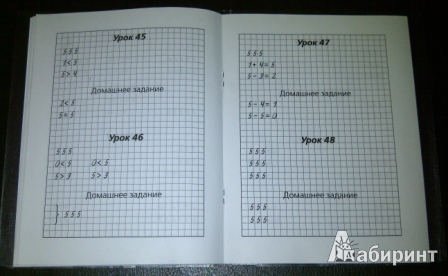 Урок 45
5 5 5
1 < 5
5 > 4
Домашнее задание
2 < 5
5 = 5
Урок 46
5 5 5
0 < 5 0 < 5
5 > 3 5 > 3
Домашнее задание
} 5 5 5
Урок 47
5 5 5
1 + 4 = 5
5 - 3 = 2
Домашнее задание
5 - 4 = 1
5 - 5 = 0
Урок 48
5 5 5
5 5 5
5 5 5
Домашнее задание
5 5 5
5 5 5
Лабиринт